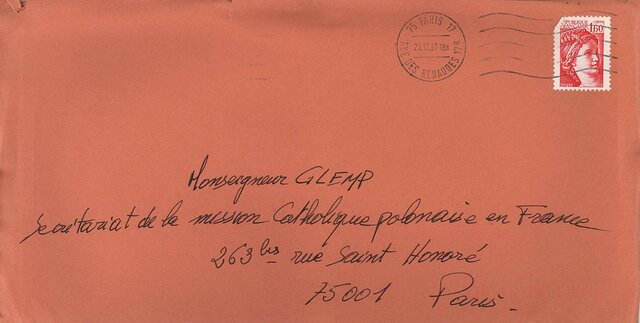 75 PARIS 17
21.12.81 18H
RUE DES RENAUDES 17e
1,60
Monseigneur GLEMP
Secrétariat de la mission Catholique polonaise en France
263 bis rue Saint Honoré
75001 Paris.